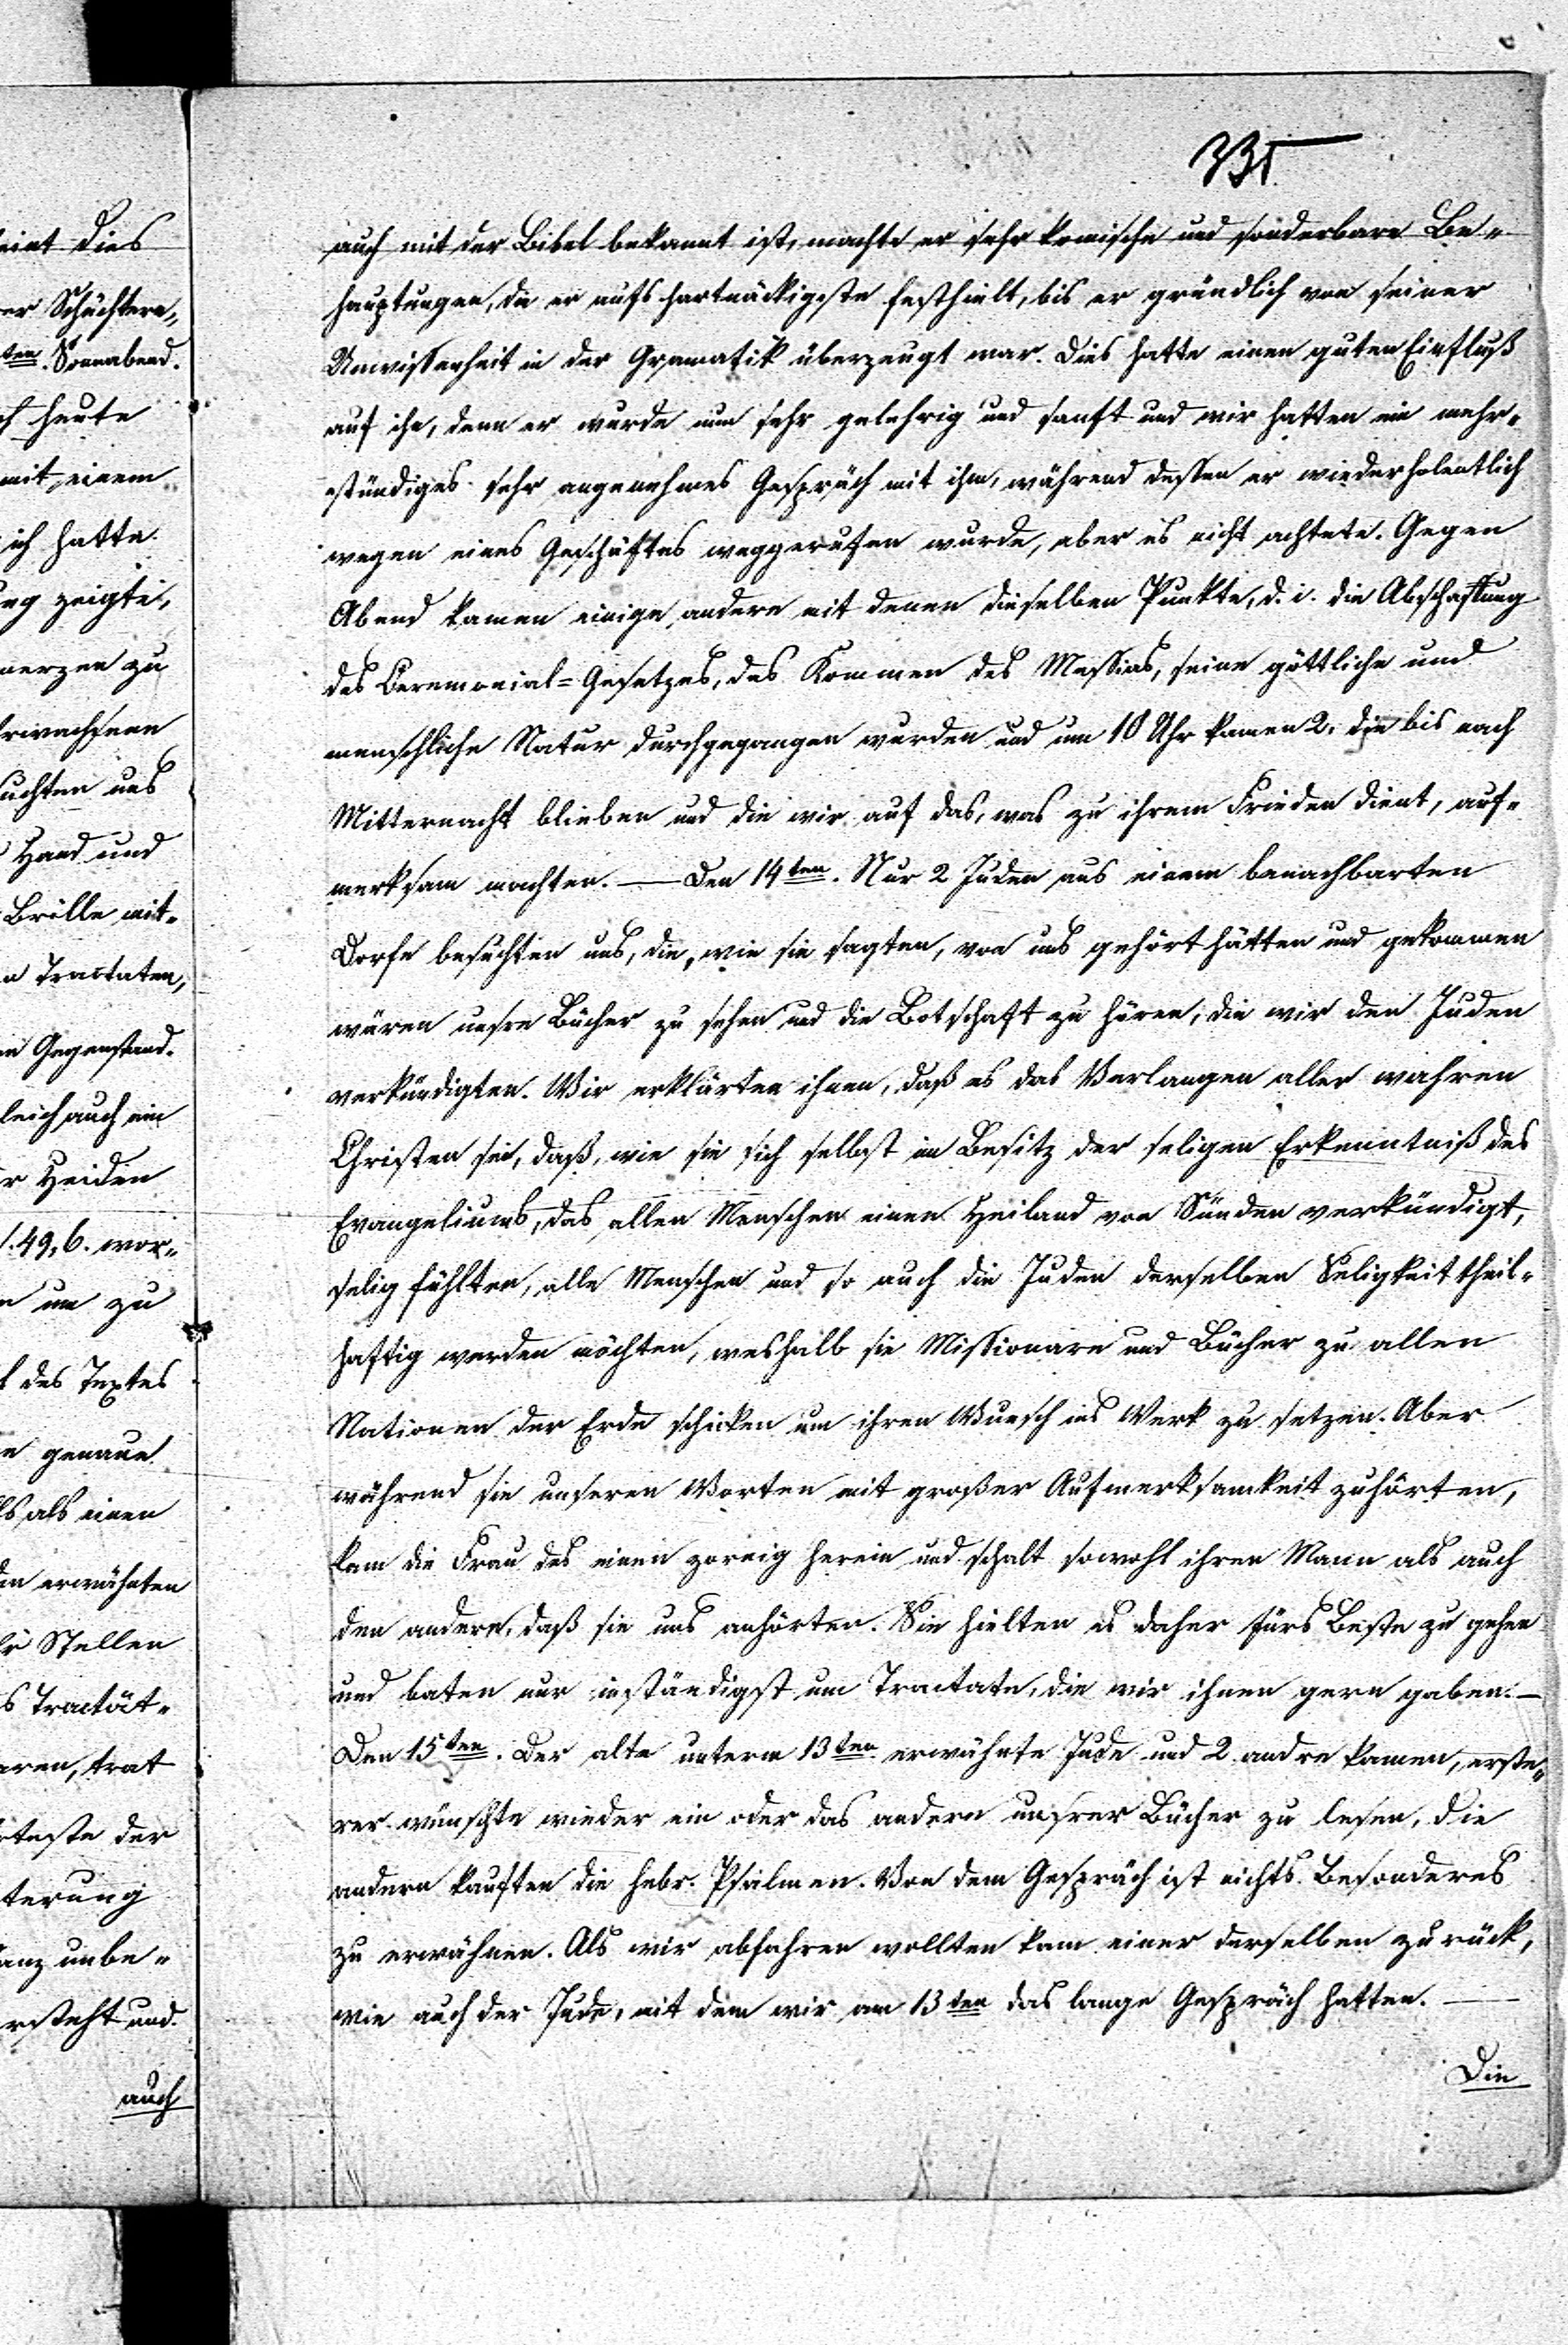 335
auch mit der Bibel bekannt ist, machte er sehr komische und sonderbare Be-
hauptungen, die er aufs hartnäckigste festhielt, bis er gründlich von seiner
Unwissenheit in der Gramatik überzeugt war. Dies hatte einen guten Einfluß
auf ihn, denn er wurde nun sehr gelehrig und sanft und wir hatten ein mehr-
stündiges sehr angenehmes Gespräch mit ihm, während dessen er wiederholentlich
wegen eines Geschäftes weggerufen wurde, aber es nicht achtete. Gegen
Abend kamen einige andere mit denen dieselben Punkte, d. i. die Abschaffung
des Ceremonial-Gesetzes, das Kommen des Messias, seine göttliche und
menschliche Natur durchgegangen wurden und um 10 Uhr kamen 2, die bis nach
Mitternacht blieben und die wir auf das, was zu ihrem Frieden dient, auf-
merksam machten. — Den 14ten. Nur 2 Juden aus einem benachbarten
Dorfe besuchten uns, die, wie sie sagten, von uns gehört hätten und gekommen
wären unsre Bücher zu sehen und die Botschaft zu hören, die wir den Juden
verkündigten. Wir erklärten ihnen, daß es das Verlangen aller wahren
Christen sei, daß, wie sie sich selbst im Besitz der seligen Erkenntniß des
Evangeliums, das allen Menschen einen Heiland von Sünden verkündigt,
selig fühlten, alle Menschen und so auch die Juden derselben Seligkeit theil-
haftig werden möchten, weshalb sie Missionare und Bücher zu allen
Nationen der Erde schicken um ihren Wunsch ins Werk zu setzen. Aber
während sie unseren Worten mit großer Aufmerksamkeit zuhörten,
kam die Frau des einen zornig herein und schalt sowohl ihren Mann als auch
den andern, daß sie uns anhörten. Sie hielten es daher fürs Beste zu gehen
und baten nur inständigst um Tractate, die wir ihnen gern gaben. —
Den 15ten. Der alte unterm 13ten erwähnte Jude und 2 andre kamen, erste-
rer wünschte wieder ein oder das andere unsrer Bücher zu lesen, die
andern kauften die hebr. Psalmen. Von dem Gespräch ist nichts Besonderes
zu erwähnen. Als wir abfahren wollten kam einer derselben zurück,
wie auch der Jude, mit dem wir am 13ten das lange Gespräch hatten. —
Die
dies
Schüchtern-
ten. Sonnabend.
heute
mit einem
ich hatte
zeigte,
zu
uns
Hand und
Brille mit-
Tractaten,
Gegenstand.
auch ein
Heiden
49, 6. wor-
um zu
des Textes
genaue
als einen
erwähnten
Stellen
Tractät-
trat
der
unbe-
und
auch